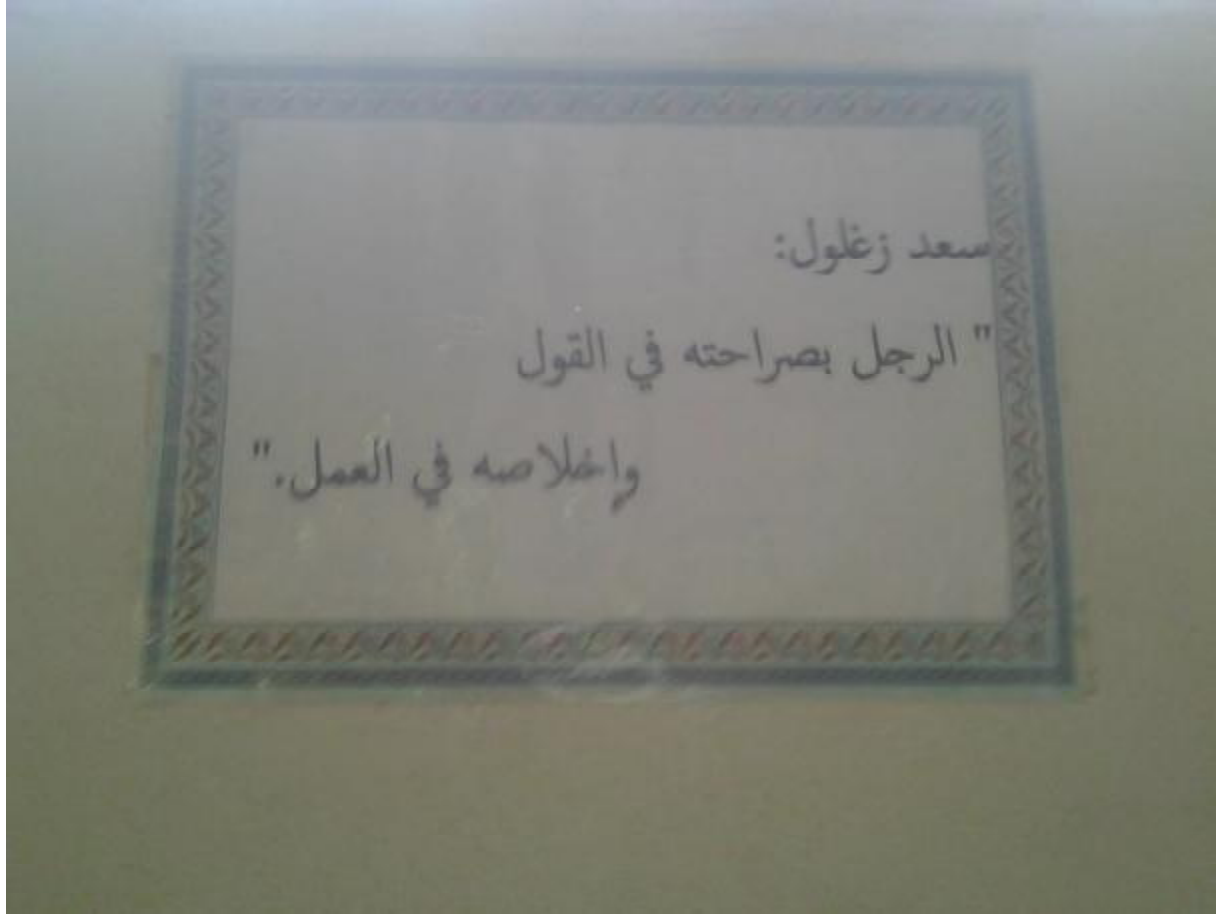 سعد زغلول:
" الرجل بصراحته في القول
وإخلاصه في العمل."